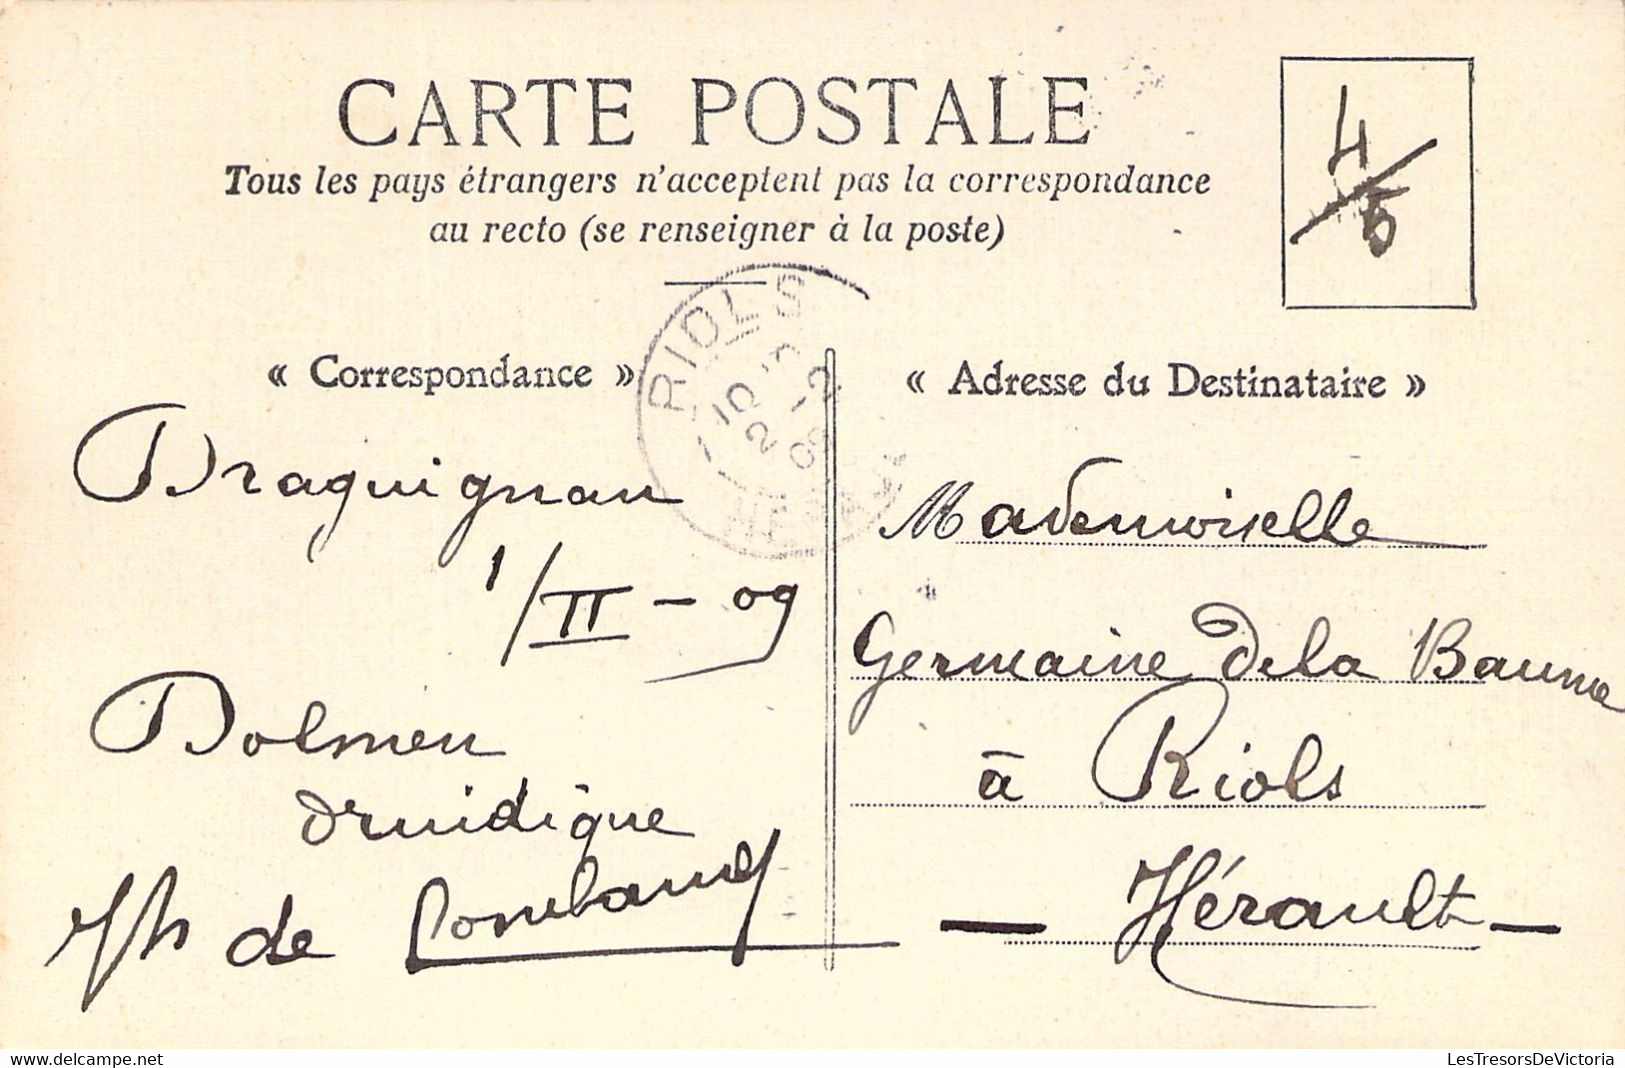 CARTE POSTALE
Tous les pays étrangers n'acceptent pas la correspondance
au recto (se renseigner à la poste)
4/5
RIOLS
10
2 - 2
09
HERAULT
« Correspondance »
Draguignan
1/II - 09
Dolmen
druidique
de
« Adresse du Destinataire »
Mademoiselle
Germaine de la Baume
à Riols
— Hérault —
www.delcampe.net
LesTresorsDeVictoria